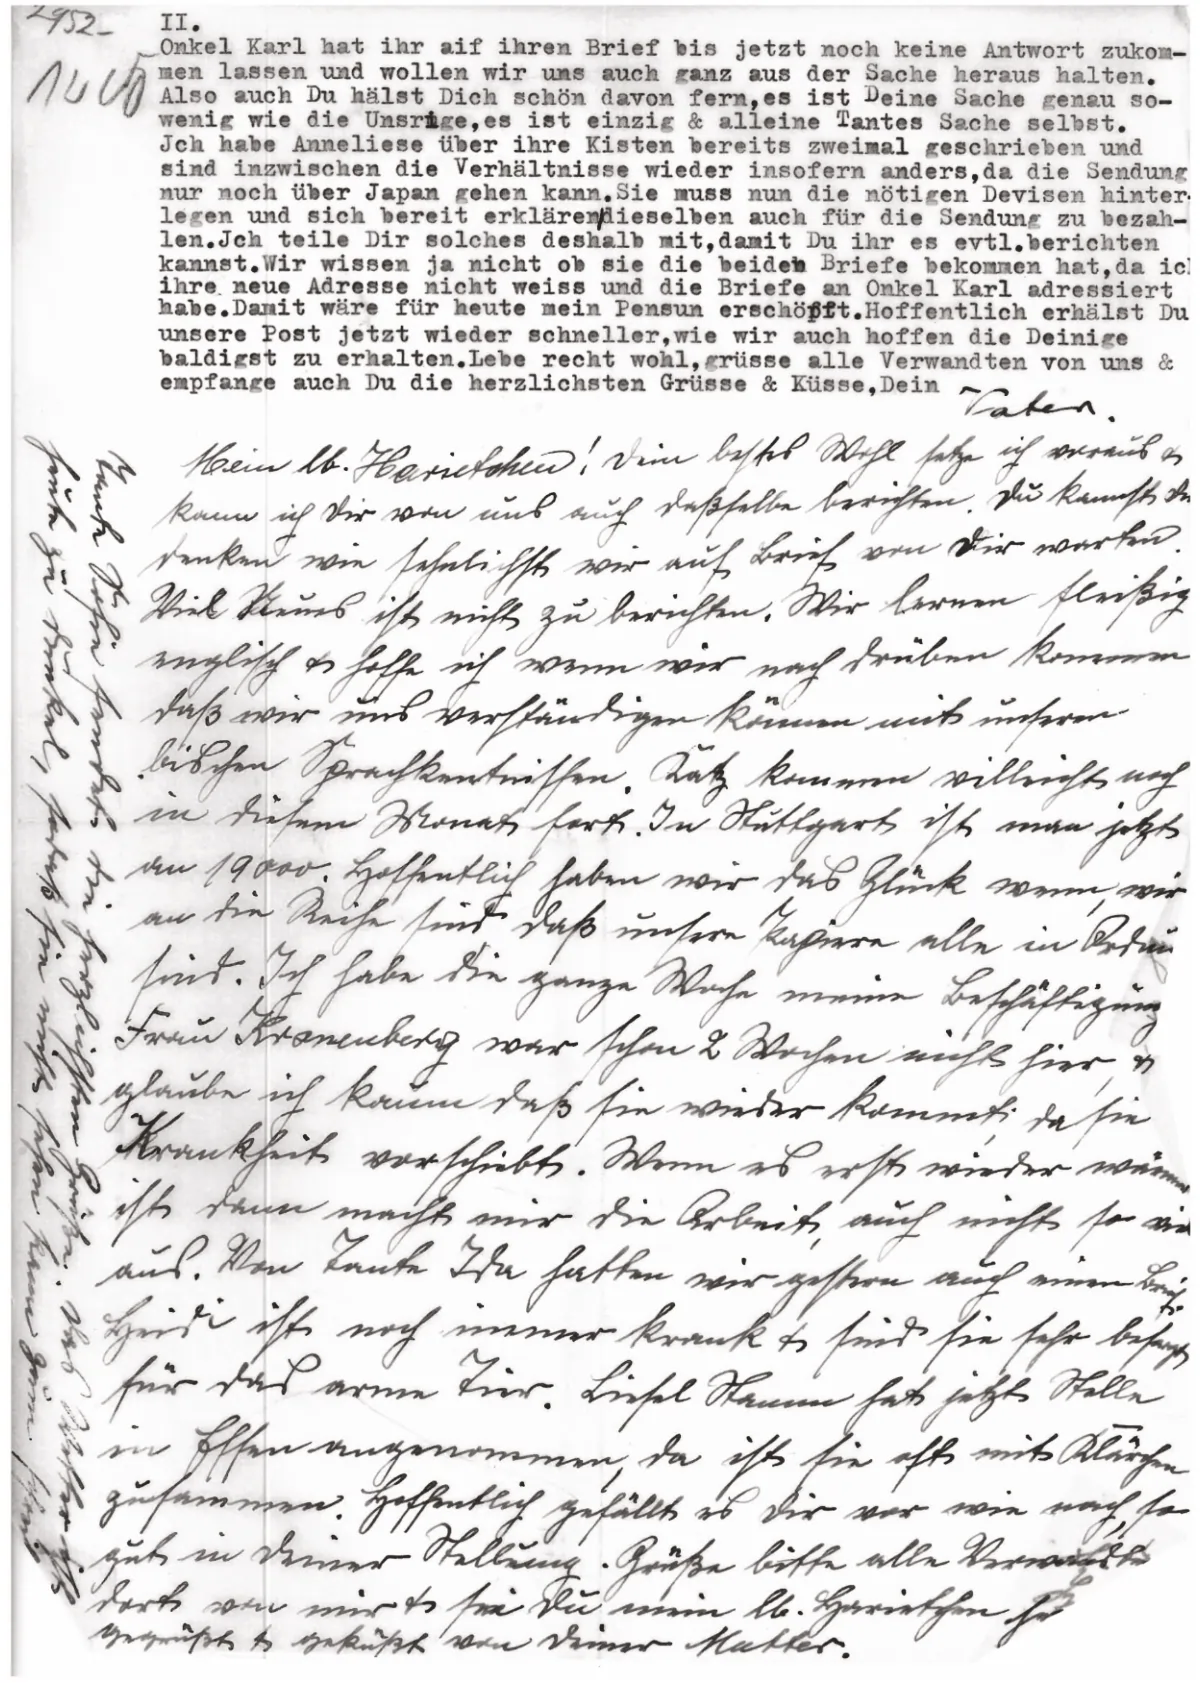 2952-
II.
Onkel Karl hat ihr aif ihren Brief bis jetzt noch keine Antwort zukom-
men lassen und wollen wir uns auch ganz aus der Sache heraus halten.
Also auch Du hälst Dich schön davon fern,es ist Deine Sache genau so-
wenig wie die Unsrige,es ist einzig & alleine Tantes Sache selbst.
Jch habe Anneliese über ihre Kisten bereits zweimal geschrieben und
sind inzwischen die Verhältnisse wieder insofern anders,da die Sendung
nur noch über Japan gehen kann.Sie muss nun die nötigen Devisen hinter-
legen und sich bereit erklären/dieselben auch für die Sendung zu bezah-
len.Jch teile Dir solches deshalb mit,damit Du ihr es evtl.berichten
kannst.Wir wissen ja nicht ob sie die beiden Briefe bekommen hat,da ic
ihre neue Adresse nicht weiss und die Briefe an Onkel Karl adressiert
habe.Damit wäre für heute mein Pensun erschöpft.Hoffentlich erhälst Du
unsere Post jetzt wieder schneller,wie wir auch hoffen die Deinige
baldigst zu erhalten.Lebe recht wohl,grüsse alle Verwandten von uns &
empfange auch Du die herzlichsten Grüsse & Küsse,Dein
Vater.
Mein lb. Harietchen! Dein bestes Wohl setze ich voraus &
kann ich Dir von uns auch daßselbe berichten. Du kannst Dir
denken wie sehnlichst wir auf Brief von Dir warten.
Viel Neues ist nicht zu berichten. Wir lernen fleißig
englisch & hoffe ich wenn wir nach drüben kommen
daß wir uns verständigen können mit unseren
bischen Sprachkentnissen. Katz kommen villeicht noch
in diesem Monat fort. In Stuttgart ist man jetzt
an 19000. Hoffentlich haben wir das Glück wenn, wir
an die Reihe sind daß unsere Papiere alle in Ordnu
sind. Ich habe die ganze Woche meine Beschäftigung
Frau Kronenberg war schon 2 Wochen nicht hier, &
glaube ich kaum daß sie wieder kommt, da sie
Krankheit vorschiebt. Wenn es erst wieder wärmer
ist dann macht mir die Arbeit, auch nicht so vie
aus. Von Tante Ida hatten wir gestern auch einen Brief.
Heidi ist noch immer krank & sind sie sehr besorgt
für das arme Tier. Liesel Stamm hat jetzt Stelle
in Essen angenommen, da ist sie oft mit Klärchen
zusammen. Hoffentlich gefällt es Dir vor wie nach, so
gut in Deiner Stellung. Grüße bitte alle Verwandte
dort von mir & sei Du mein lb. Harietchen
gegrüßt & geküßt von Deiner Mutter.
Tante sendet die herzlichsten Grüße. Das Wetter ist
heute zu dunkel, sodaß sie nicht sehen kann zum schreiben